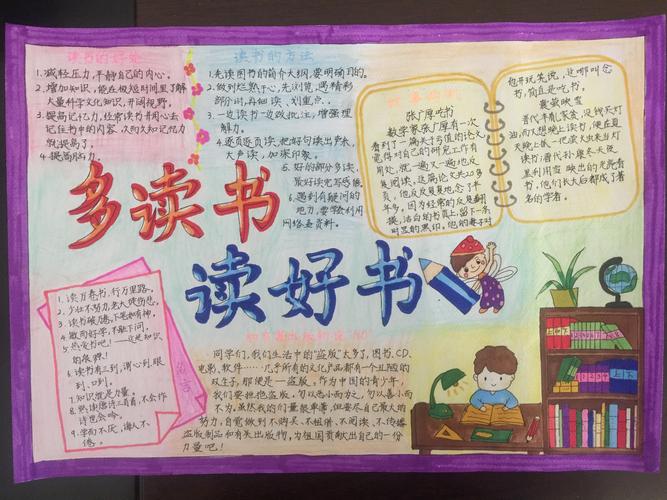 读书的好处
1.减轻压力,平静自己的内心。
2.增加知识,能在极短时间里了解
大量科学文化知识,开阔视野。
3.提高记忆力,经常读书并用心去
记住书中的内容,次而久知记忆力
就提高了。
4.提高写作力。
读书的方法
1.先读图书的简介大纲,要明确目的。
2.做到烂熟于心,先浏览,遇精彩
部分时,再细读、划重点。
3.一边读书一边做批注,增强理
解力。
4.逐页逐页读,把好句读出声来,
大声读,加深印象。
5.好的部分多读,
最好读完写感触
6.遇到有疑问的
地方,要学会利用
网络查资料。
多读书
读好书
张广厚吃书
数学家张广厚有一次
看到了一篇关于亏值的论文,
觉得对自己的研究工作有
用处,就一遍又一遍地反
复阅读,这篇论文共20多
页,他反反复复地念了半
年多。因为经常的反复翻
摸,洁白的书页上,留下一条
明显的黑印。他的妻子对
他开玩笑说,这哪叫念
书,简直是吃书。
囊萤映雪
晋代车胤家贫,没钱买灯
油,而又想晚上读书,便在夏
天晚上抓一把萤火虫当灯
读书;晋代孙康冬天夜
里利用雪映出的光亮看
书,他们长大后都成了著
名的学者。
1.读万卷书,行万里路。
2.少壮不努力,老大徒伤悲。
3.读书破万卷,下笔如有神。
4.敏而好学,不耻下问。
5.热爱书吧!——这是知识
的泉源!
6.读书有三到,谓心到、眼
到、口到。
7.知识就是力量。
8.熟读唐诗三百首,不会作
诗也会吟。
9.学而不厌,诲人不
倦。
名言
同学们,我们生活中的“盗版”太多了,图书、CD、
电影、软件……几乎所有的文化产品都有一个丑陋的
双生子,那便是一盗版。作为中国的青少年,
我们要拒绝盗版,勿以恶小而为之,勿以善小而
不为。虽然我的力量很单薄,但要尽自己最大的
努力,自觉做到不购买、不租借、不阅读、不传播
盗版制品和有关出版物,为祖国贡献出自己的一份
力量吧!